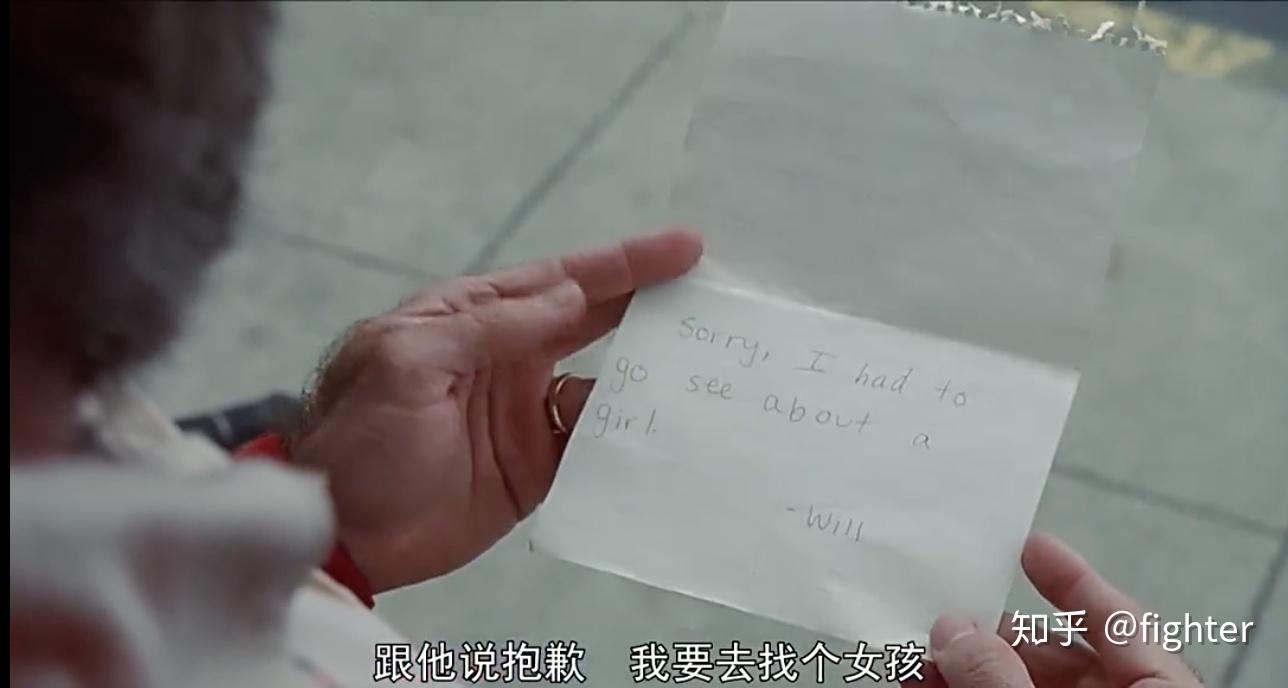 sorry, I had to
go see about a
girl.
-Will
知乎 @fighter
跟他说抱歉 我要去找个女孩